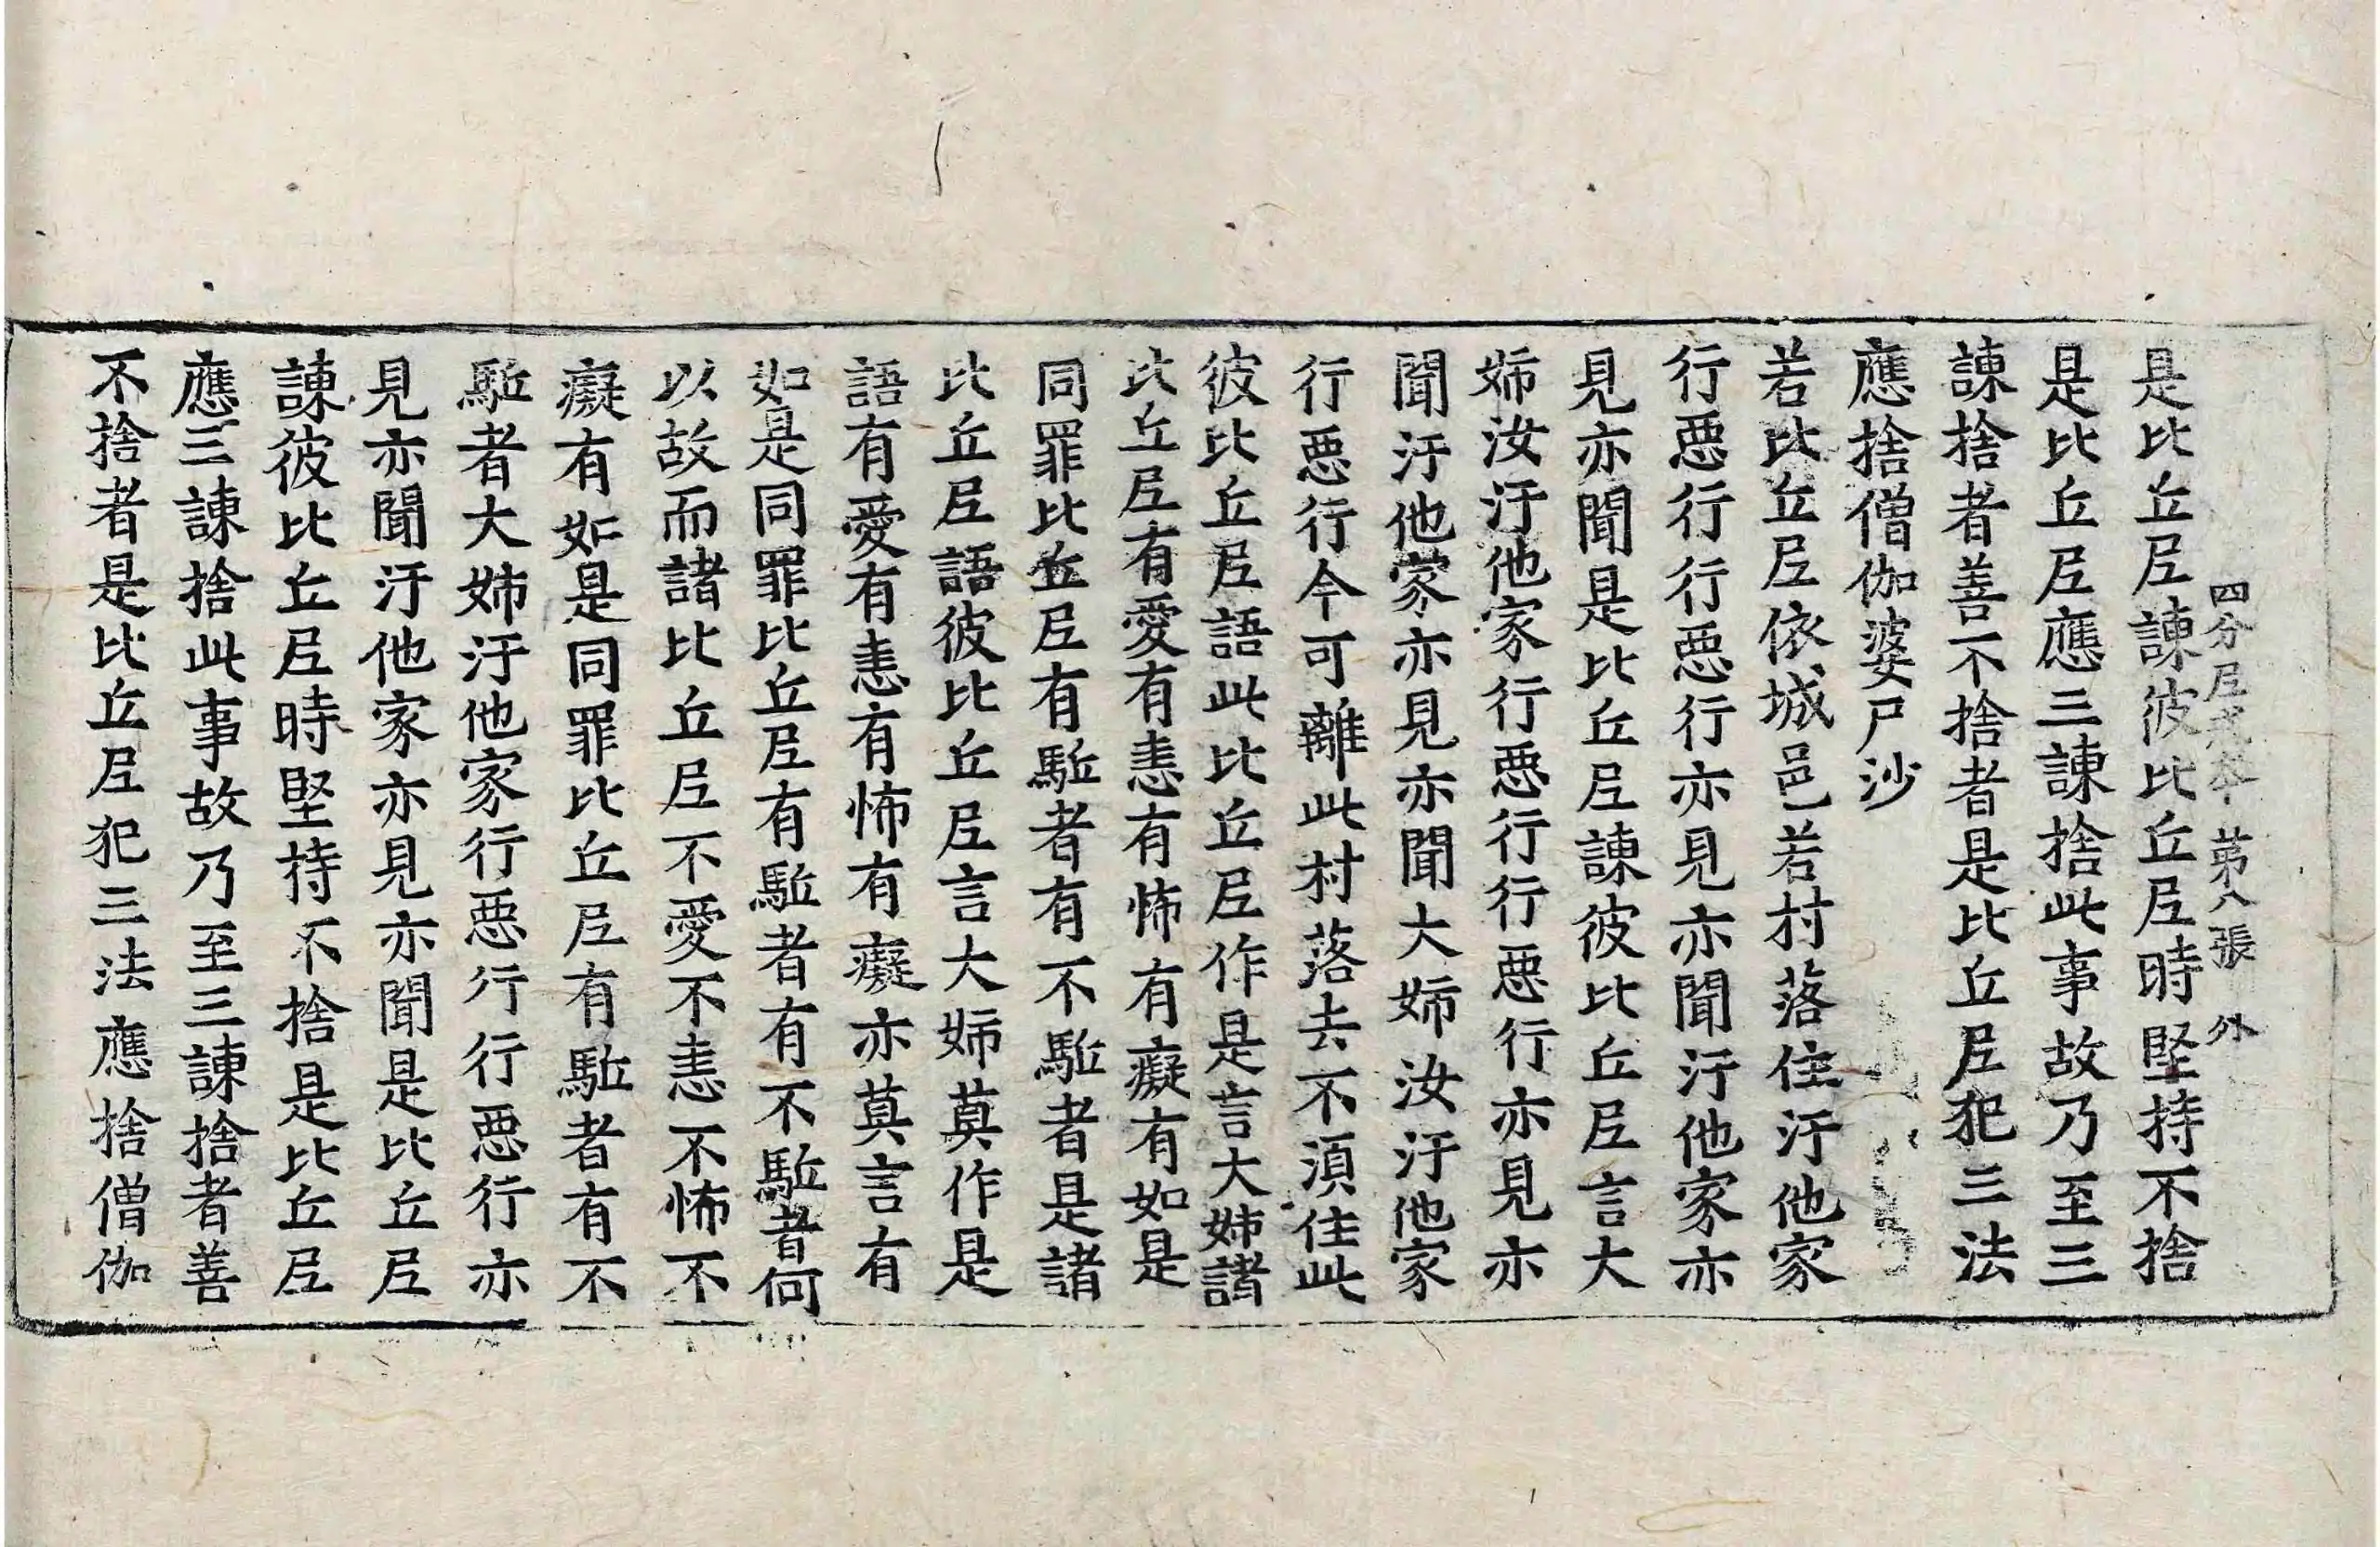 四分尼戒本 苐八張 外
是比丘尼諫彼比丘尼時堅持不捨
是比丘尼應三諫捨此事故乃至三
諫捨者善不捨者是比丘尼犯三法
應捨僧伽婆尸沙
若比丘尼依城邑若村落住汙他家
行悪行行悪行亦見亦聞汙他家亦
見亦聞是比丘尼諫彼比丘尼言大
姉汝汙他家行悪行行悪行亦見亦
聞汙他家亦見亦聞大姉汝汙他家
行悪行今可離此村落去不湏住此
彼比丘尼語此比丘尼作是言大姉諸
比丘尼有愛有恚有怖有癡有如是
同罪比丘尼有駈者有不駈者是諸
比丘尼語彼比丘尼言大姉莫作是
語有愛有恚有怖有癡亦莫言有
如是同罪比丘尼有駈者有不駈者何
以故而諸比丘尼不愛不恚不怖不
癡有如是同罪比丘尼有駈者有不
駈者大姉汙他家行悪行行悪行亦
見亦聞汙他家亦見亦聞是比丘尼
諫彼比丘尼時堅持不捨是比丘尼
應三諫捨此事故乃至三諫捨者善
不捨者是比丘尼犯三法應捨僧伽